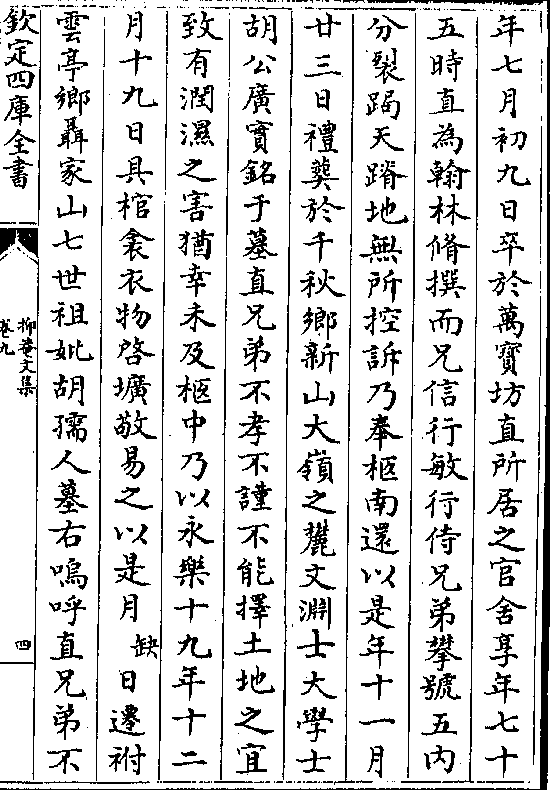 年七月初九日卒於萬寶坊直所居之官舍享年七十
五時直為翰林脩撰而兄信行敏行侍兄弟攀號五內
分裂跼天蹐地無所控訴乃奉柩南還以是年十一月
廿三日禮葬於千秋鄉新山大嶺之麓文淵士大學士
胡公廣實銘于墓直兄弟不孝不謹不能擇土地之宜
致有潤濕之害猶幸未及柩中乃以永樂十九年十二
月十九日具棺衾衣物啓壙敬易之以是月缺日遷祔
雲亭鄉聶家山七世祖妣胡孺人墓右嗚呼直兄弟不
欽定四庫全書
抑菴文集
卷九
四